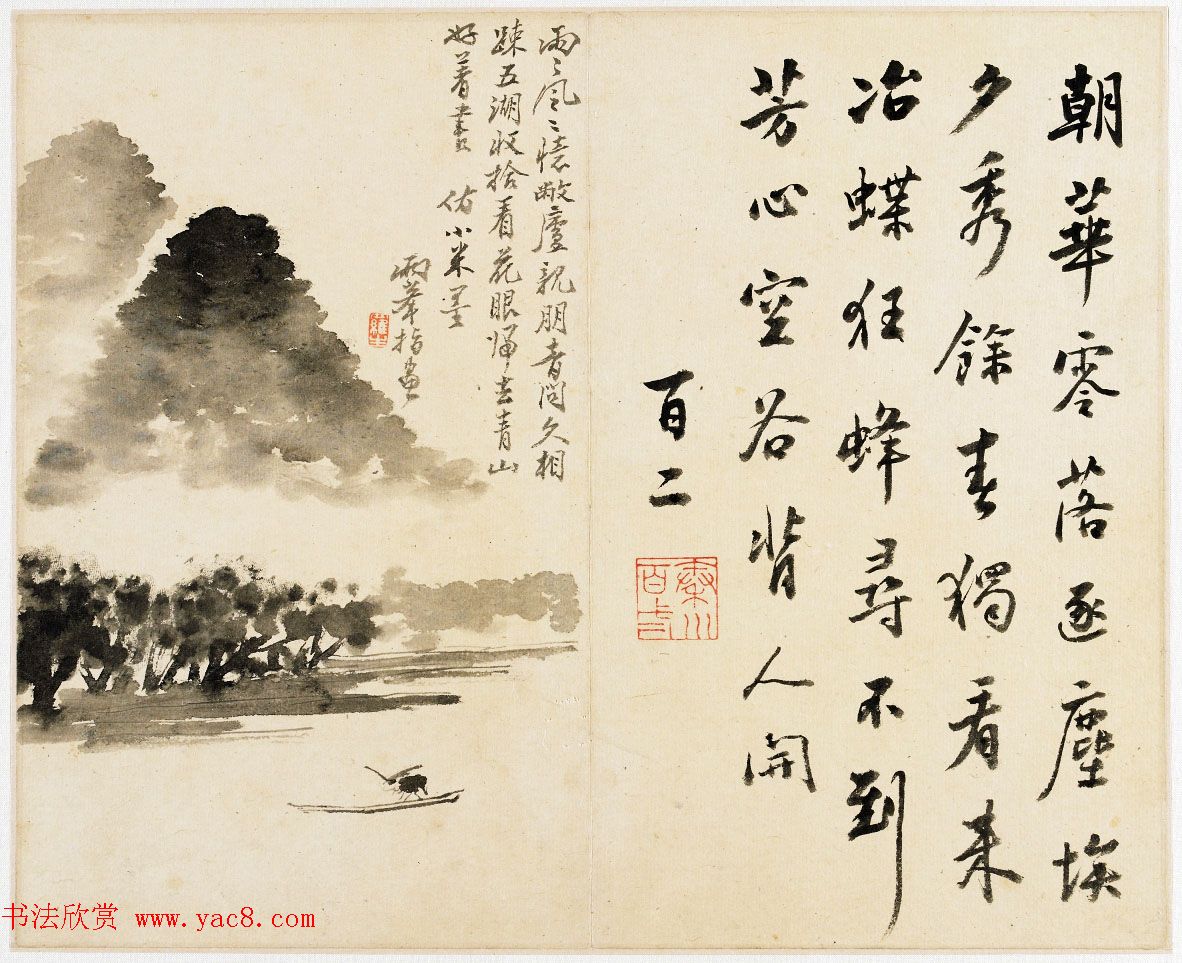 朝華零落逐塵埃
夕秀餘春獨看来
冶蝶狂蜂尋不到
芳心空谷背人開
百二
秦川百二
雨〻風〻憶敝廬親朋音問久相
踈五湖收拾看花眼歸去青山
好著書 仿小米墨
兩峯指畫
书法欣赏 www.yac8.com